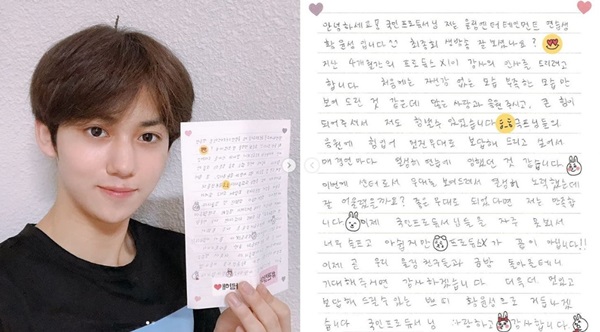 안녕하세요 국민프로듀서님 저는 울림엔터테인먼트 연습생
황윤성 입니다 최종회 생방을 잘 보셨나요?
지난 4개월간의 프로듀스X의 감사의 인사를 드리려고
합니다 처음에는 자신감 없는 모습 부족한 모습만
보여 드린 것 같은데 많은 사랑과 응원주시고, 큰 힘이
되어주셔서 저도 힘낼수 있었습니다 국프님들의
응원에 힘입어 멋진무대로 보답해 드리고 보여서
매 경연마다 열심히 연습에 임했던 것 같습니다
이번에 센터로서 무대를 보여드려서 열심히 노력했는데
잘 어울렸을까요? 좋은 무대로 되었다면 저는 만족합
니다 이제 국민프로듀서님들을 자주 못봬서
너무 슬프고 아쉽지만 프로듀스X가 끝이 아닙니다!!
이제 곧 우리 울림친구들과 금방 돌아올테니
기대해주시면 감사하겠습니다 더욱더 멋있고
보답해 드릴수 있는 멘티 황윤성으로 거듭나겠
습니다 국민프로듀서님 사랑하고 감사합니다